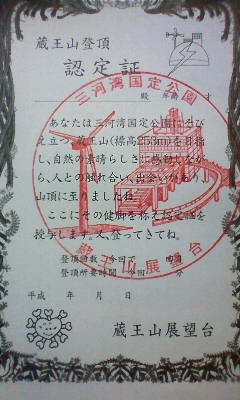 蔵王山登頂
認定証
殿 年齢 才
三河湾国定公園
あなたは三河湾国定公園にそび
え立つ、蔵王山(標高250m)を目指
し、自然の素晴らしさに感動しなが
ら、人との触れ合い、出会いがあり、
山頂に至りましたね。
ここにその健脚を称え認定証を
授与します。又、登ってきてね。
登頂回数 今回で 回目
登頂所要時間 今回 分
蔵王山展望台
平成 年 月 日
蔵王山展望台